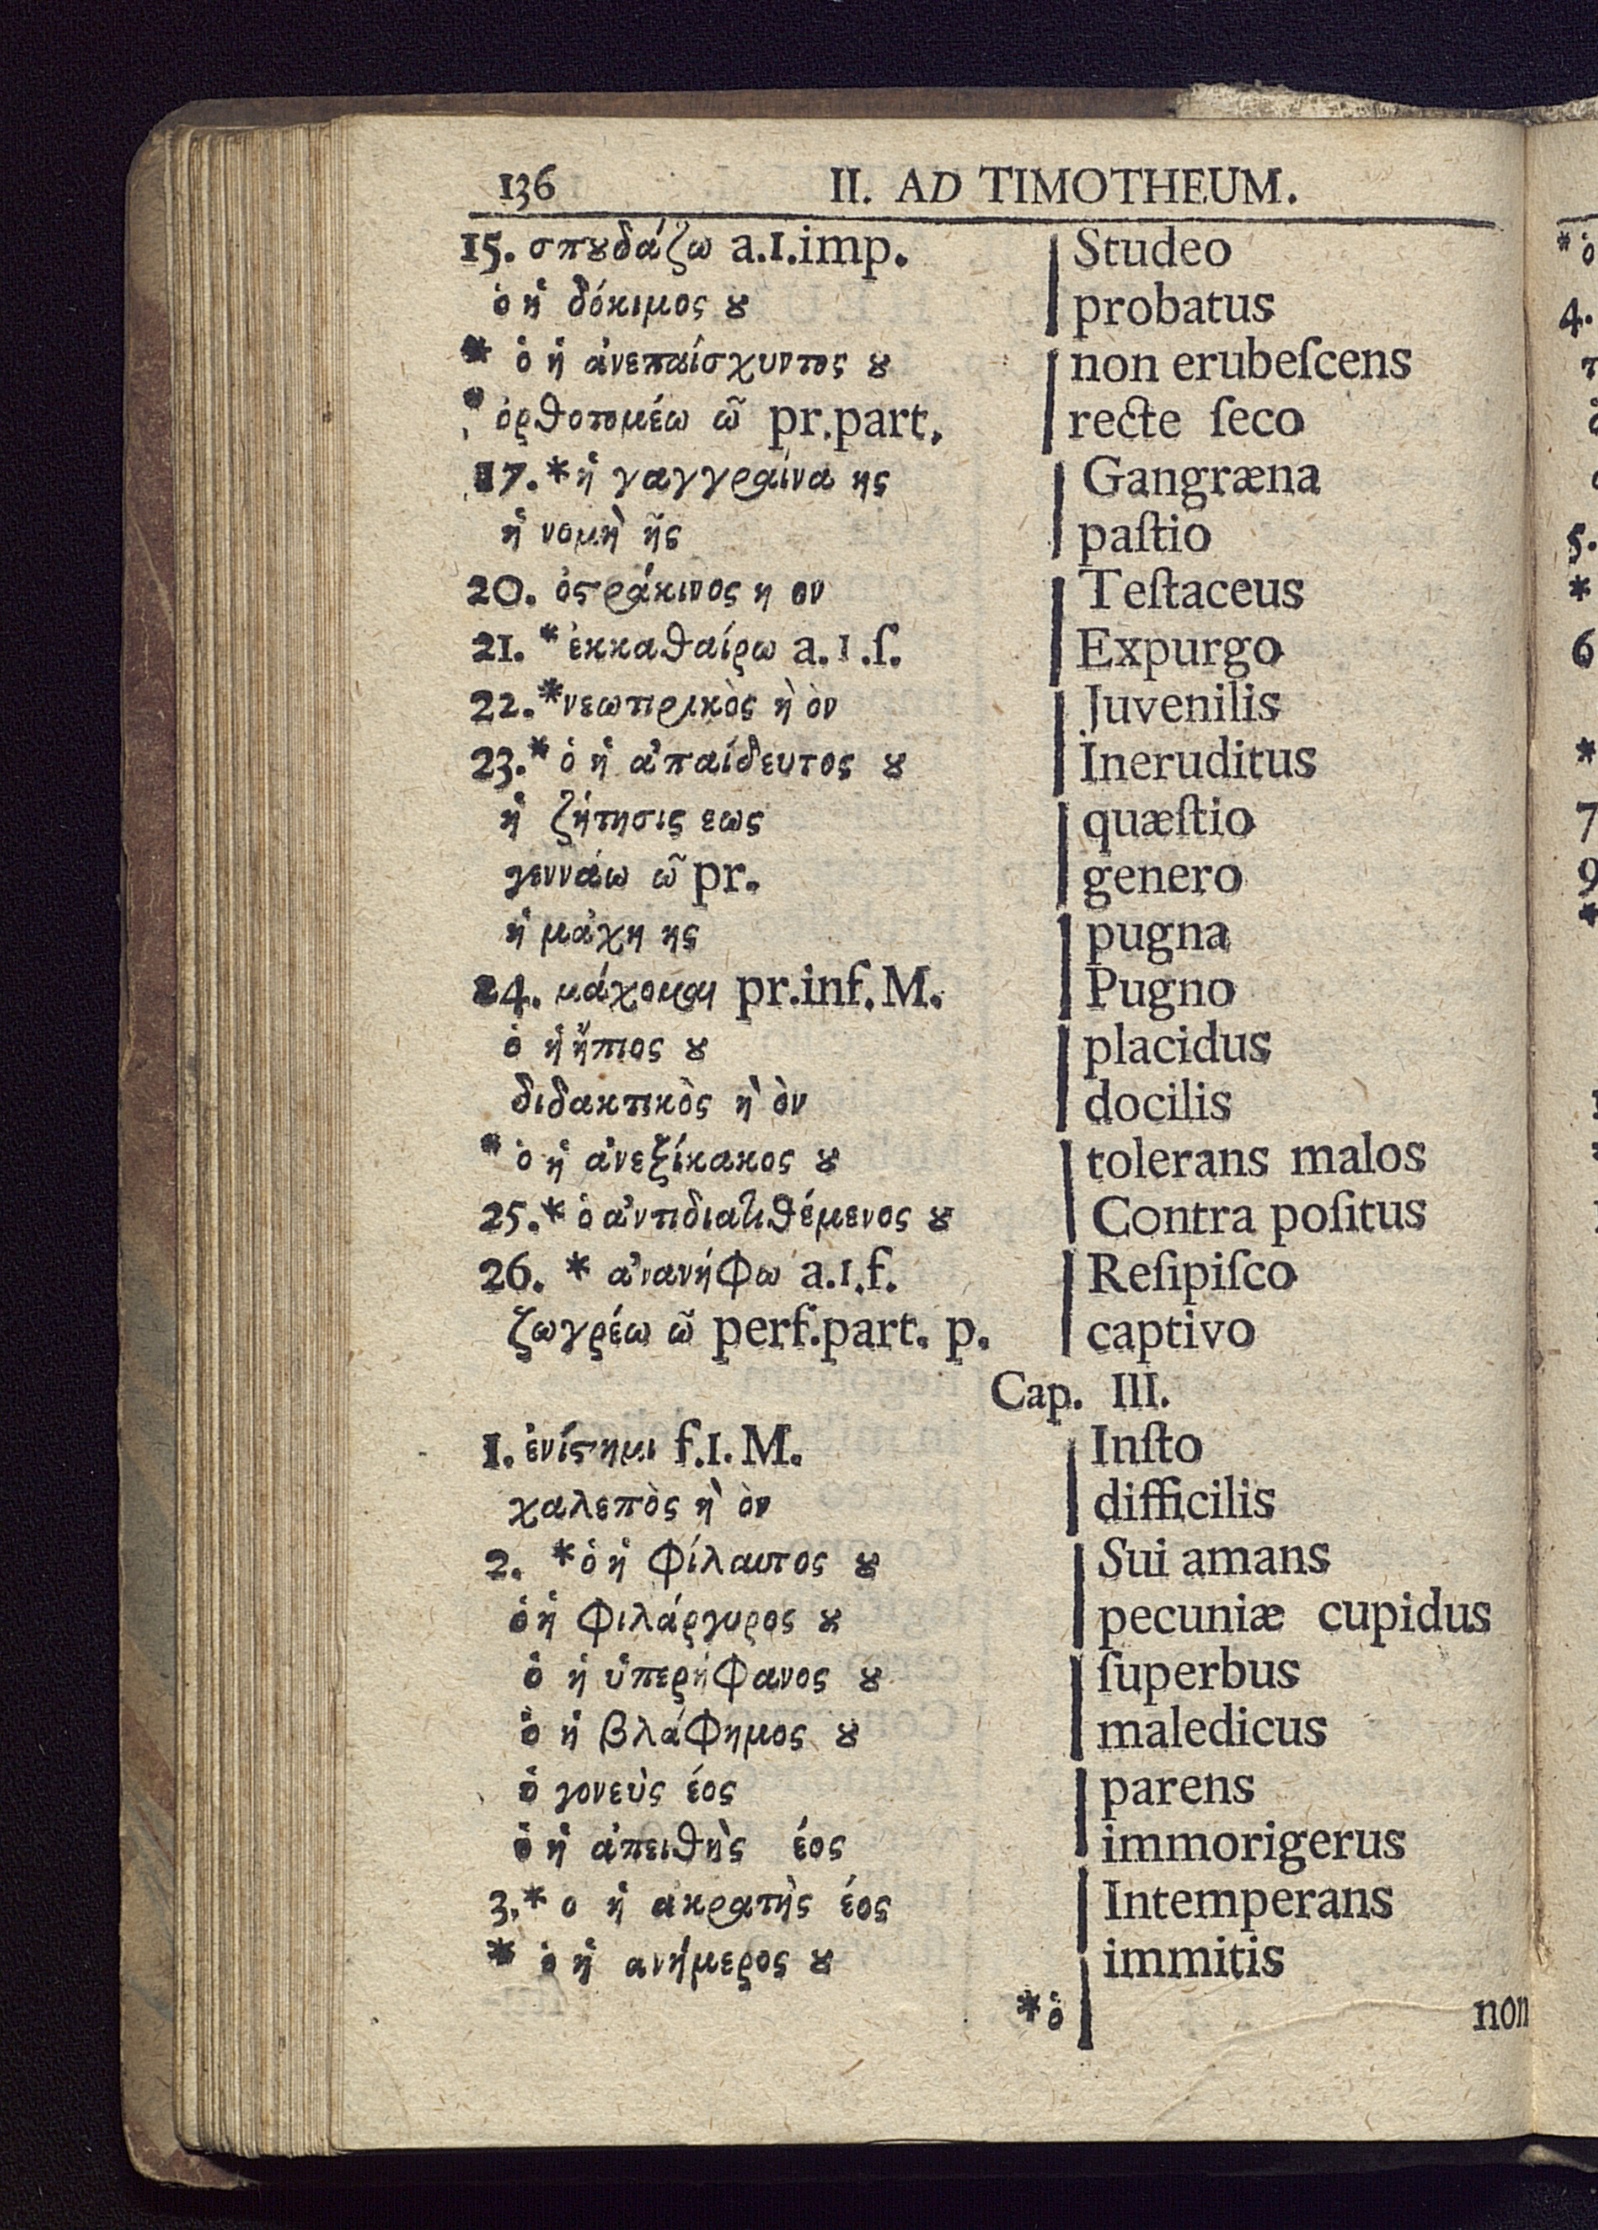 136 II. AD TIMOTHEUM.
15. σπȣδάζω a.1.imp. Studeo
ὁ ἡ δόκιμος ȣ probatus
* ὁ ἡ ἀνεπαίσχυντος ȣ non erubeſcens
* ὀρθοτομέω ῶ pr.part. recte ſeco
17.* ἡ γαγγραίνα ης Gangræna
ἡ νομὴ ῆς paſtio
20. ὀϛράκινος η ον Teſtaceus
21. * ἐκκαθαίρω a.1.ſ. Expurgo
22.*νεωτερικὸς ὴ ὸν Juvenilis
23.* ὁ ἡ ἀπαίδευτος ȣ Ineruditus
ἡ ζήτησις εως quæſtio
γεννάω ῶ pr. genero
ἡ μάχη ης pugna
24. μάχομαι pr.inf.M. Pugno
ὁ ἡ ἤπιος ȣ placidus
διδακτικὸς ὴ ὸν docilis
* ὁ ἡ ἀνεξίκακος ȣ tolerans malos
25.* ὁ ἀντιδιατιθέμενος ȣ Contra poſitus
26. * ἀνανήφω a.1.f. Reſipiſco
ζωγρέω ῶ perf.part. p. captivo
Cap. III.
1. ἐνίϛημι f.1.M. Inſto
χαλεπὸς ὴ ὸν difficilis
2. *ὁ ἡ φίλαυτος ȣ Sui amans
ὁ ἡ φιλάργυρος ȣ pecuniæ cupidus
ὁ ἡ ὑπερήφανος ȣ ſuperbus
ὁ ἡ βλάφημος ȣ maledicus
ὁ γονεὺς έος parens
ὁ ἡ ἀπειθὴς έος immorigerus
3.* ο ἡ ακρατὴς έος Intemperans
* ὁ ἡ ανήμερος ȣ immitis
*ὁ non